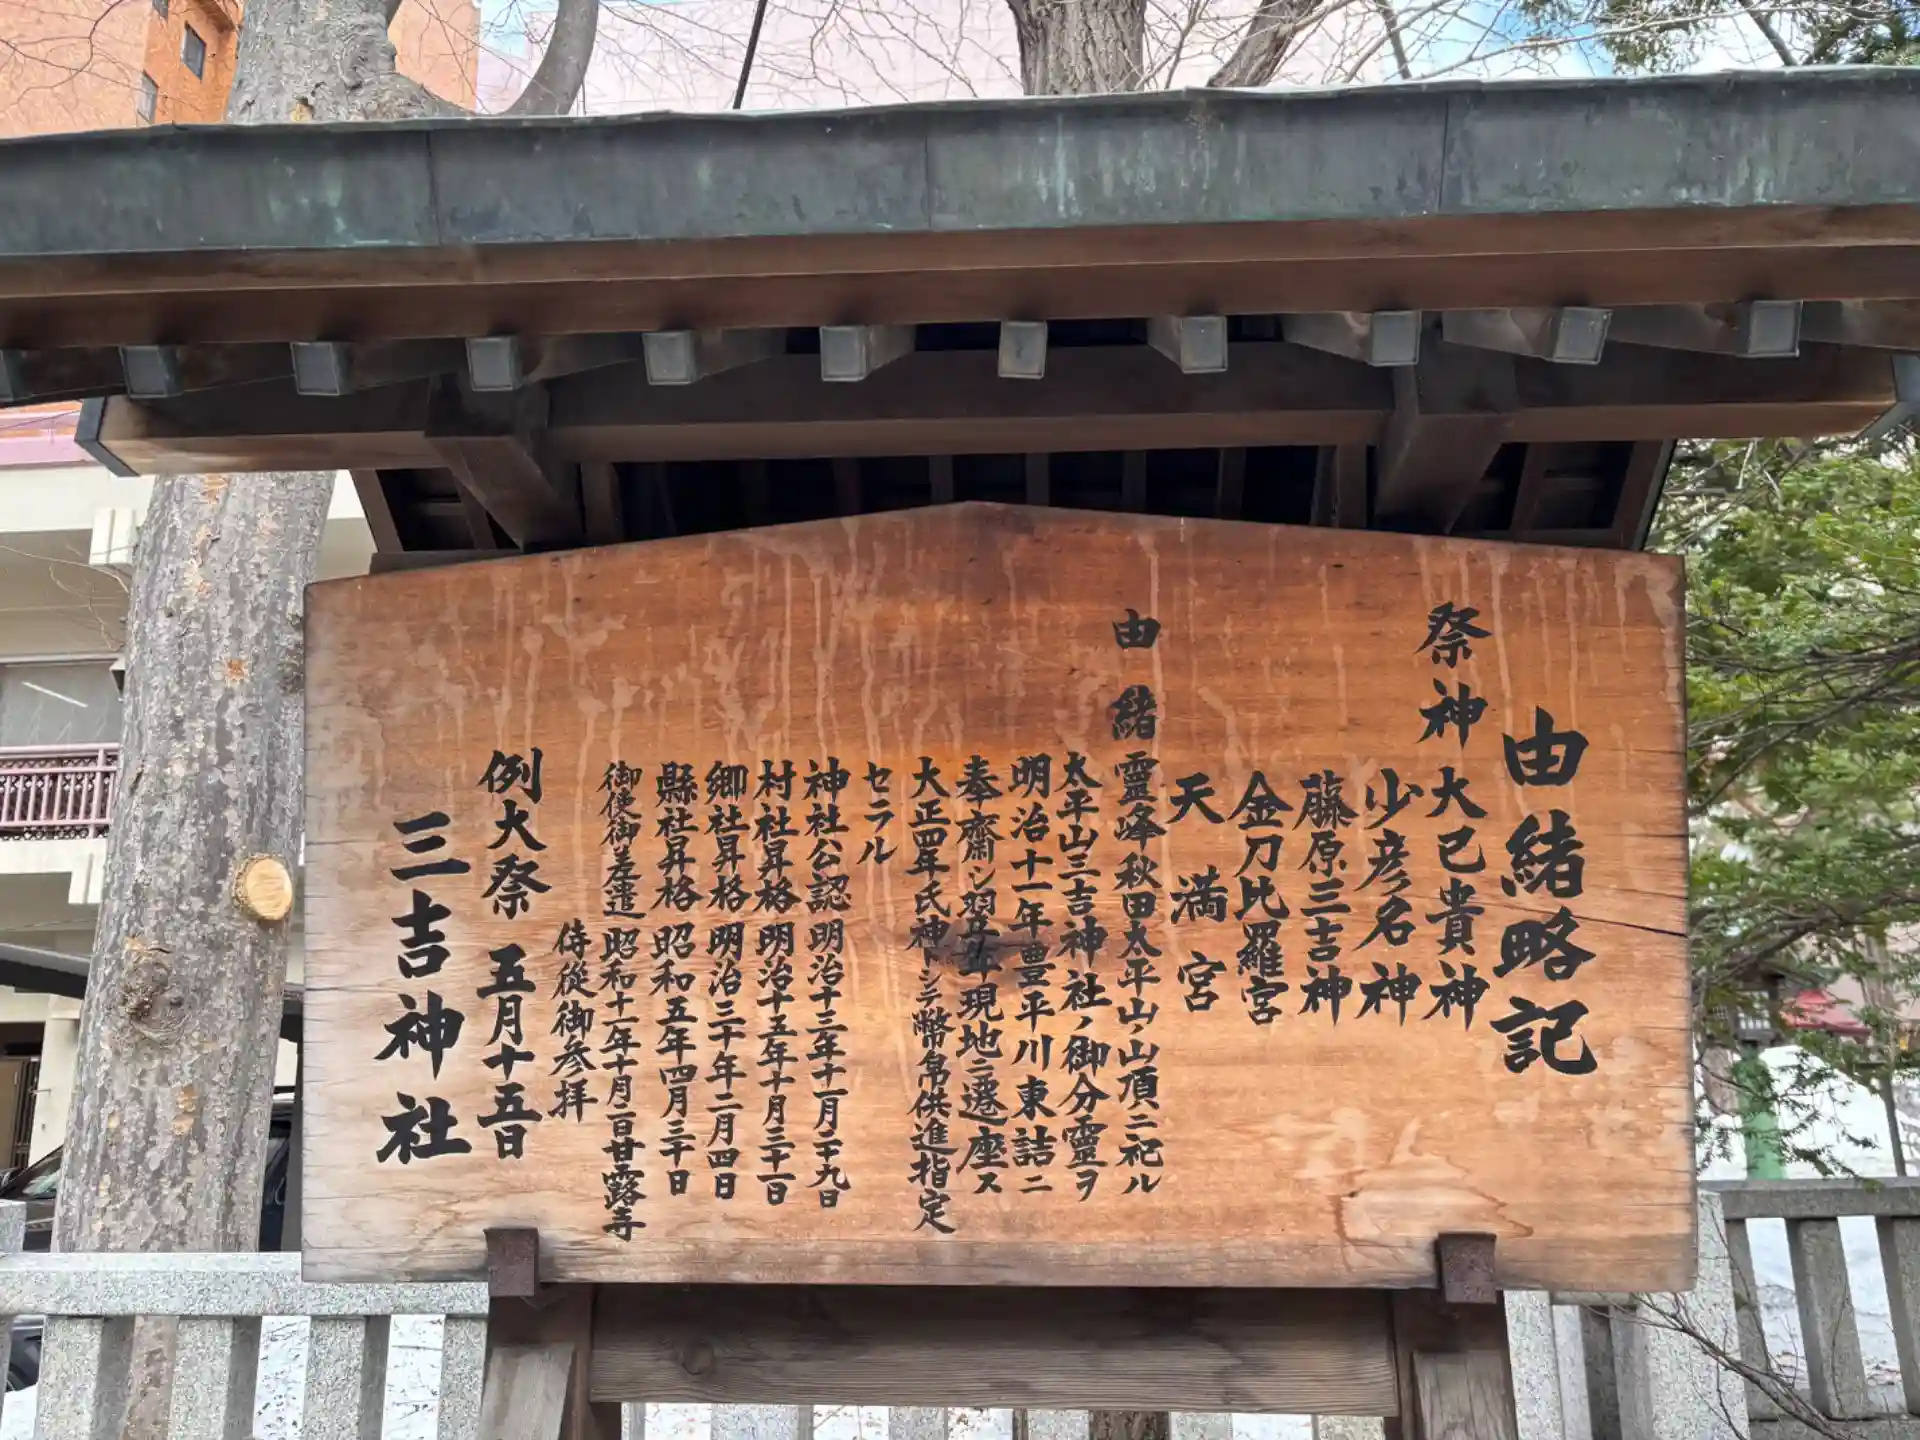 由緒略記
祭神 大己貴神
少彦名神
藤原三吉神
金刀比羅宮
天満宮
由緒 靈峰秋田太平山ノ山頂ニ祀ル
太平山三吉神社ノ御分靈ヲ
明治十一年豊平川東詰ニ
奉齋シ翌年現地ニ遷座ス
大正四年氏神トシテ幣帛供進指定
セラル
神社公認 明治十三年十一月二十九日
村社昇格 明治十五年十月三十一日
郷社昇格 明治三十年二月四日
縣社昇格 昭和五年四月三十日
御使御差遣 昭和十一年十月二日甘露寺
侍從御参拝
例大祭 五月十五日
三吉神社